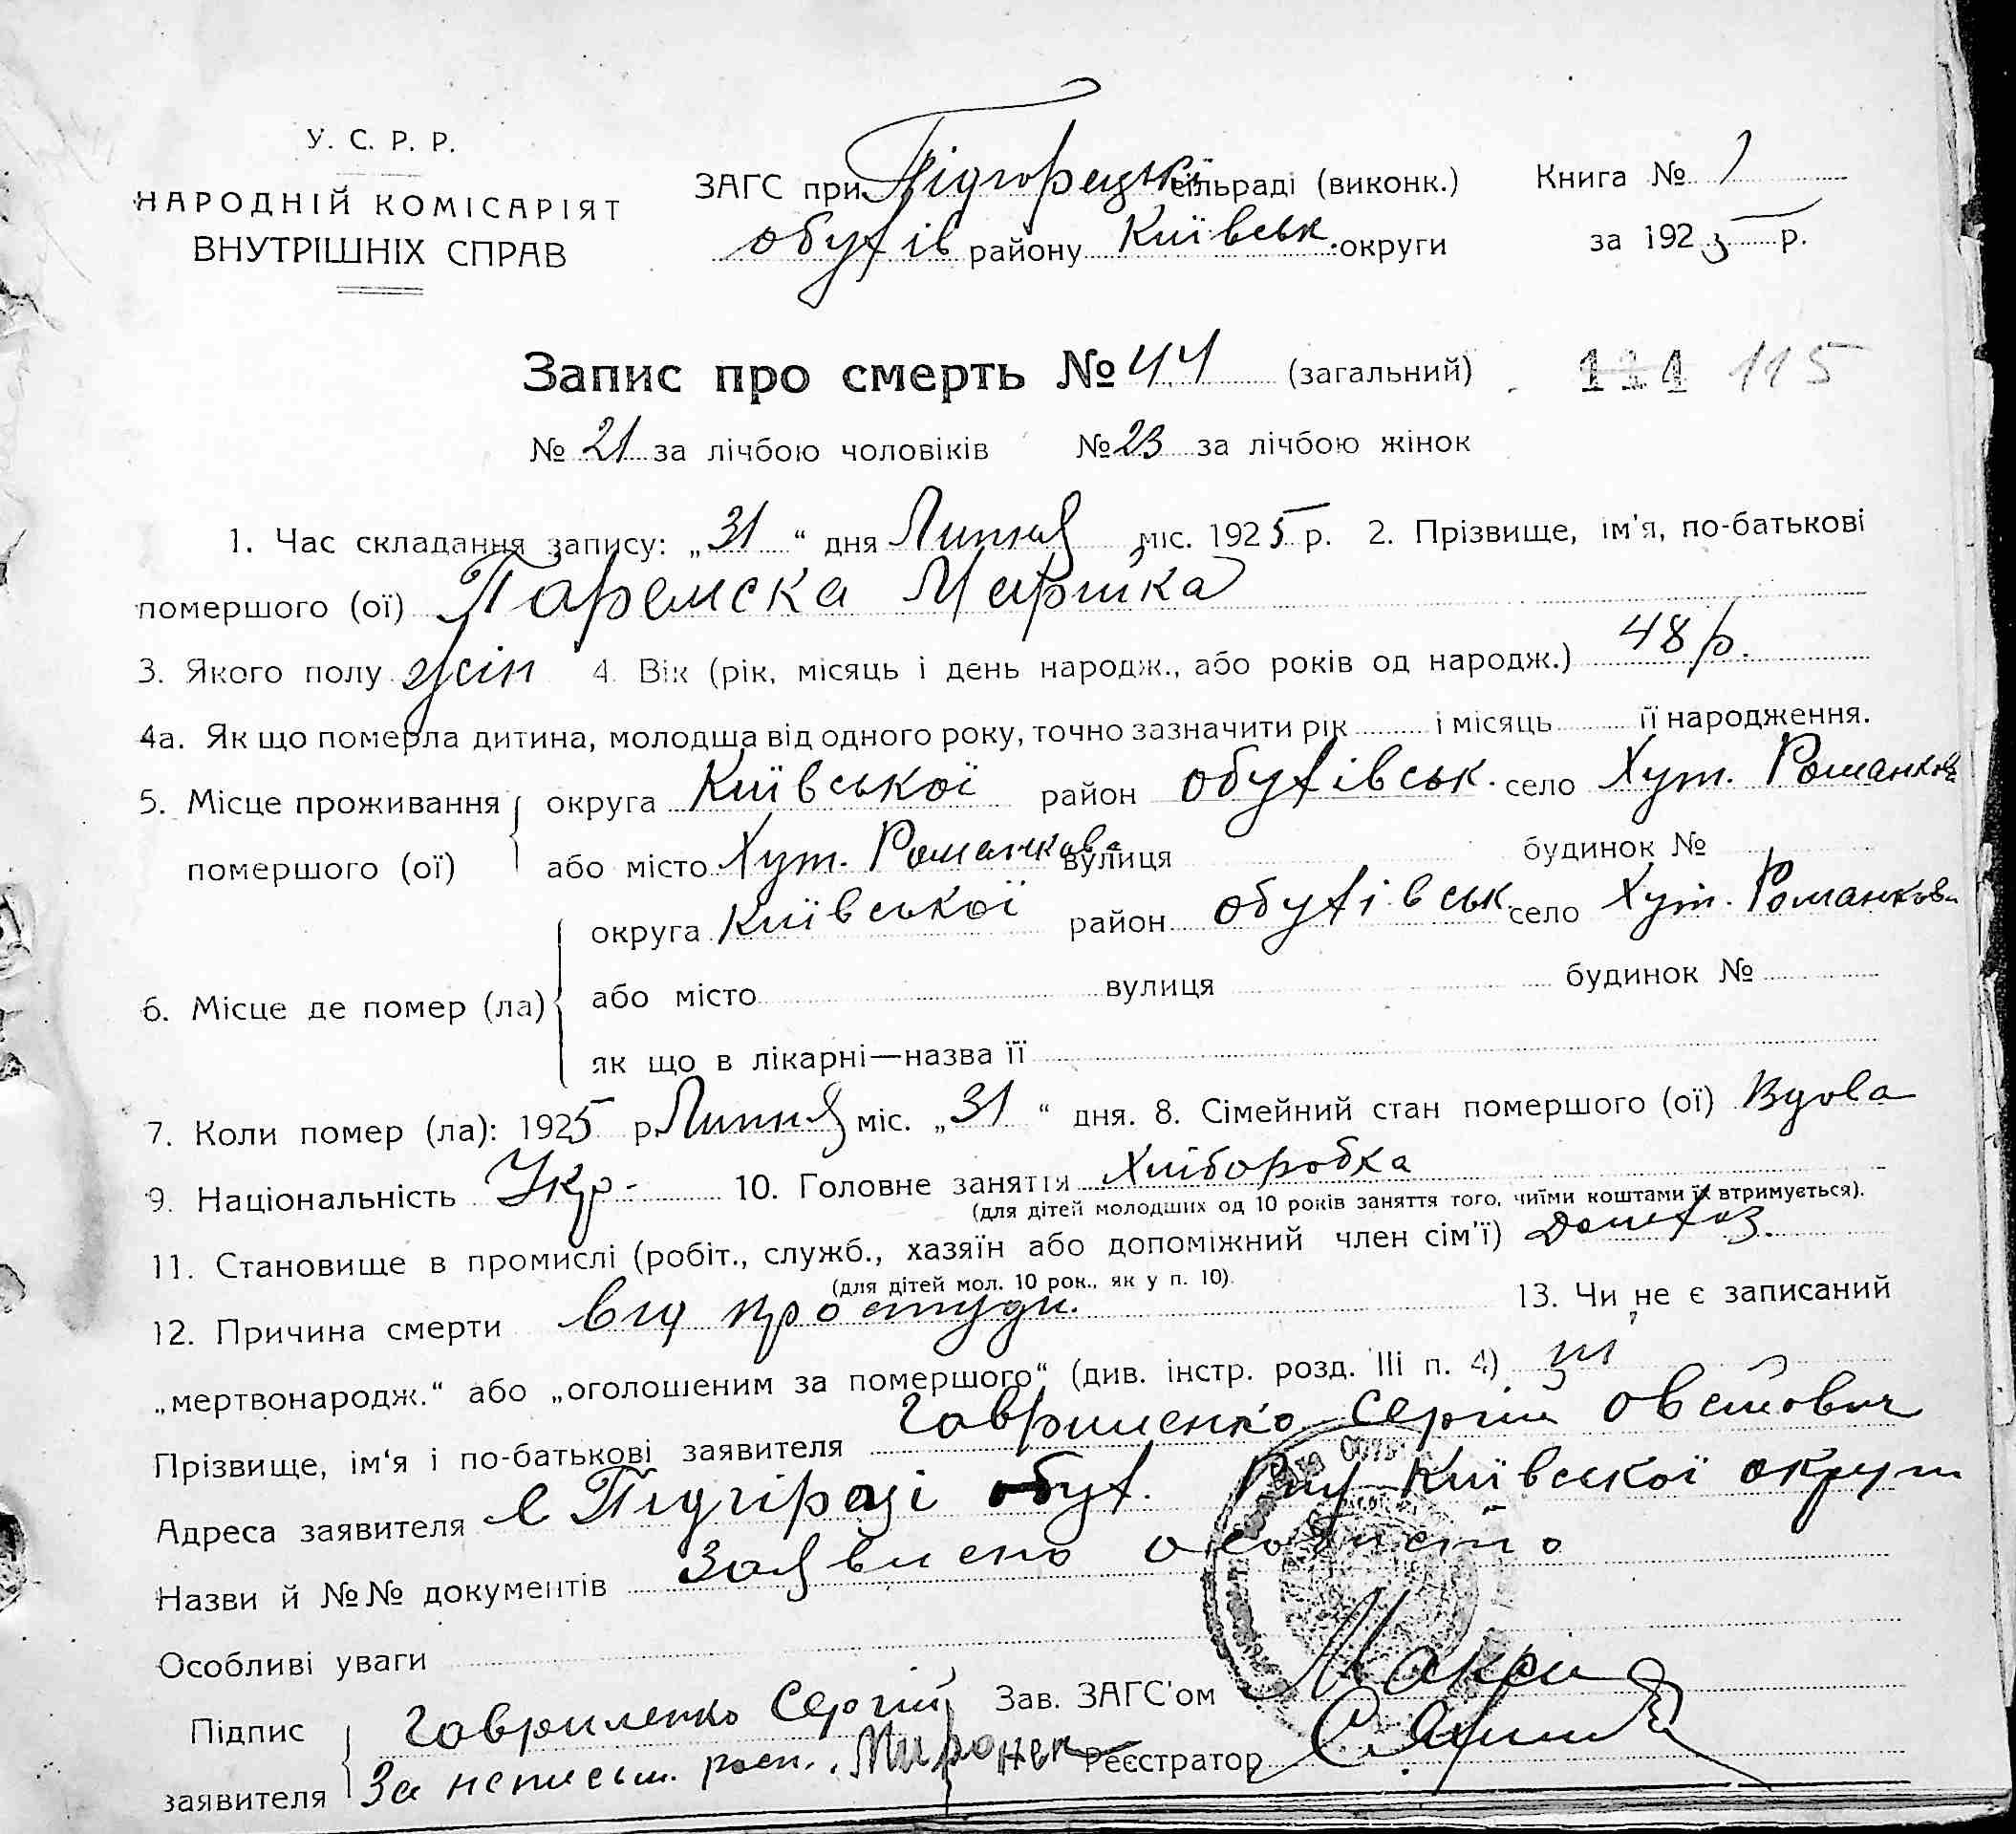 У. С. Р. Р.
НАРОДНІЙ КОМІСАРІЯТ
ВНУТРІШНІХ СПРАВ
ЗАГС при Підгорецькій сільраді (виконк.)
обухів району Київськ. округи
Книга № 1
за 1925 р.
Запис про смерть № 44 (загальний) 114 115
№ 21 за лічбою чоловіків № 23 за лічбою жінок
1. Час складання запису: „31“ дня Липня міс. 1925 р. 2. Прізвище, ім'я, по-батькові
помершого (ої) Паремска Марійка
3. Якого полу жін 4. Вік (рік, місяць і день народж., або років од народж.) 48 р.
4а. Як що померла дитина, молодша від одного року, точно зазначити рік і місяць її народження.
5. Місце проживання округа Київської район обухівськ. село Хут. Романкова
помершого (ої) або місто Хут. Романкова вулиця будинок №
округа Київської район обухівськ село Хут. Романкова
6. Місце де помер (ла) або місто вулиця будинок №
як що в лікарні—назва її
7. Коли помер (ла): 1925 р. Липня міс. „31“ дня. 8. Сімейний стан помершого (ої) Вдова
9. Національність Укр- 10. Головне заняття Хліборобка
(для дітей молодших од 10 років заняття того, чиїми коштами їх втримується).
11. Становище в промислі (робіт., служб., хазяїн або допоміжний член сім'ї)
(для дітей мол. 10 рок., як у п. 10).
12. Причина смерти від простуди. 13. Чи не є записаний
„мертвонародж.“ або „оголошеним за помершого“ (див. інстр. розд. III п. 4) ні
Прізвище, ім'я і по-батькові заявителя Гавриленко Сергій
Адреса заявителя с Підгірці обух. Київської округи
Назви й №№ документів Заявлено особисто
Особливі уваги
Підпис Гавриленко Сергій Зав. ЗАГС'ом
заявителя За неписьм. росп. Реєстратор